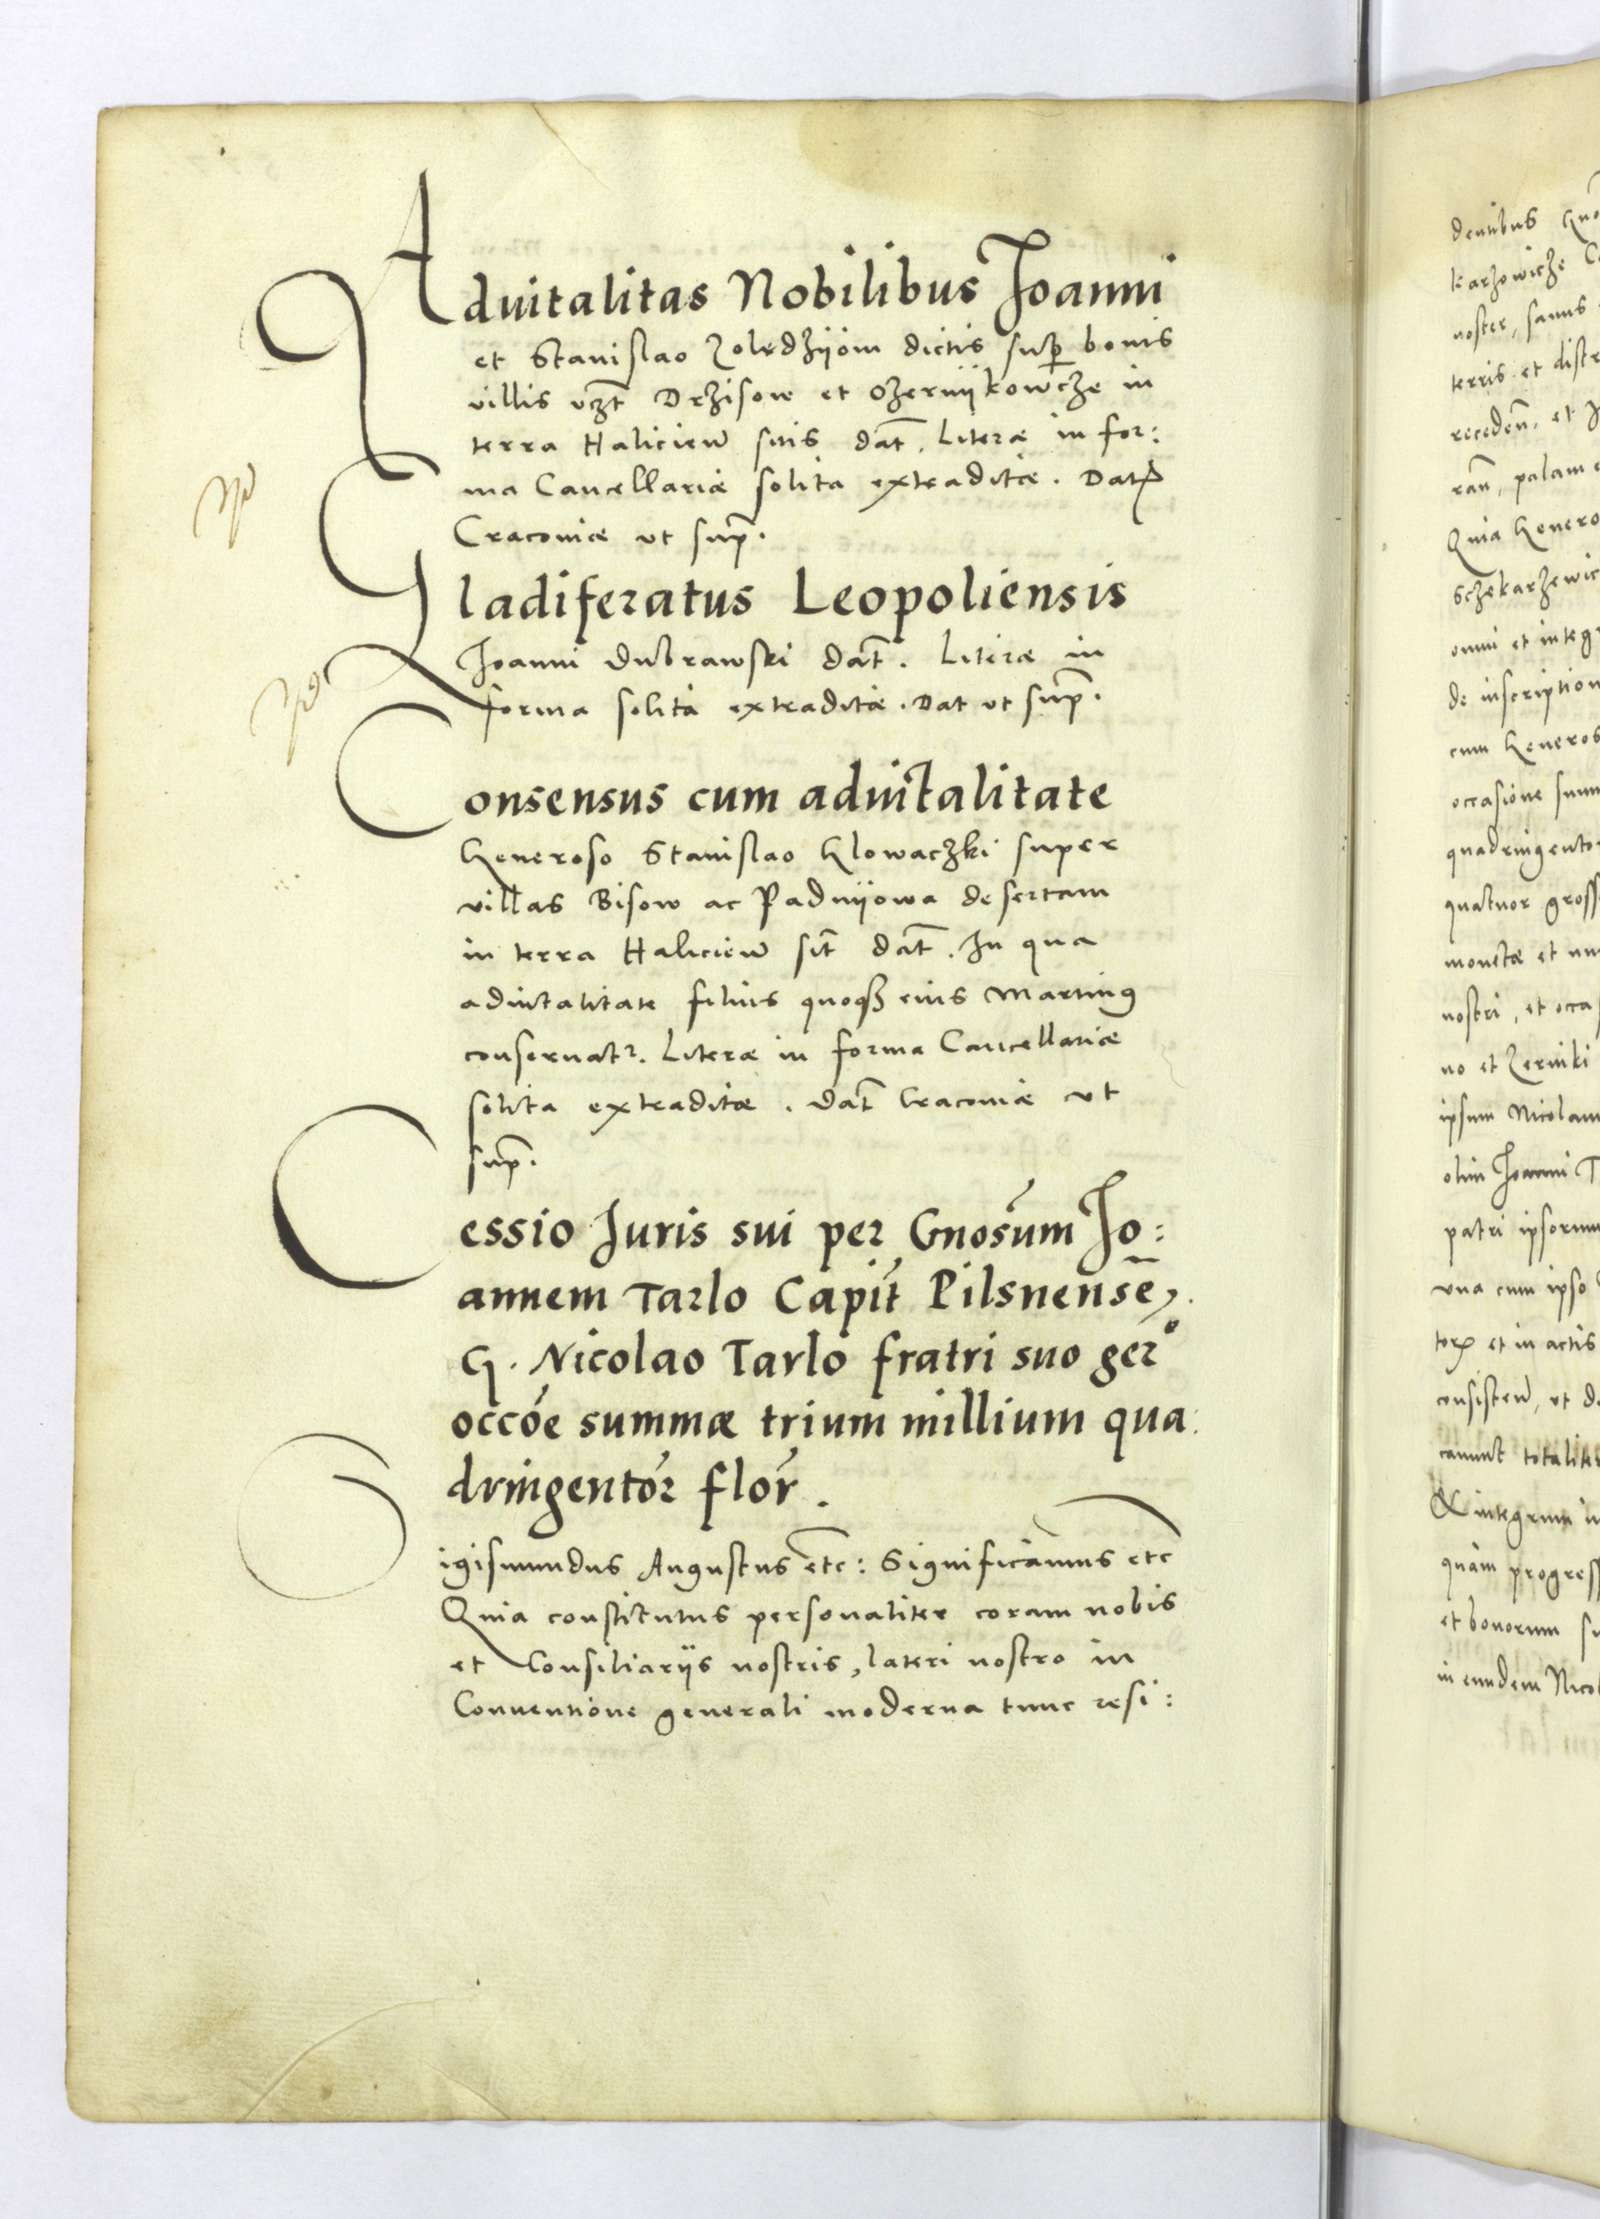 Advitalitas Nobilibus Joanni
et Stanislao Zolędzijom dictis sup bonis
villis vczt Drzisow et Ozernijkowcze in
terra Halicien sitis dat. Literæ in for:
ma Cancellariæ solita extraditæ. Dat
Cracoviæ ut sup.
Gladiferatus Leopoliensis
Joanni Dubrawski dat. Literæ in
forma solita extraditæ. Dat ut sup.
Consensus cum advitalitate
Generoso Stanislao Glowaczki super
villas Bisow ac Padnijowa desertam
in terra Halicien sit dat. In qua
aduitalitate filius quoq eius Martinus
conseruatr. Literæ in forma Cancellariæ
solita extraditæ. Dat Cracoviæ ut
sup.
Cessio Juris sui per Gnosum Jo:
annem Tarlo Capit Pilsnense,
G. Nicolao Tarlo fratri suo ger°
occoe summæ trium millium qua:
dringentor flor.
Sigismundus Augustus etc: Significamus etc
Quia constitutus personaliter coram nobis
et Consiliarijs nostris, lateri nostro in
Conuentione generali moderna tunc resi:
dentibus
karzowicze
noster, sanus
terris et
receden, et
palam
Quia Genero
Sczekarzewic
omni et integr
de inscription
cum Generos
occasione sum
quadringentor
quatuor gross
monetæ et
nostri, et occas
no et Zerniki
ipsum Nicolaum
olim Joanni T
patri ipsorum
una cum ipso
et in actis
consisten, ut
totaliter
integrum
quam progress
et bonorum su
in eundem Nicol